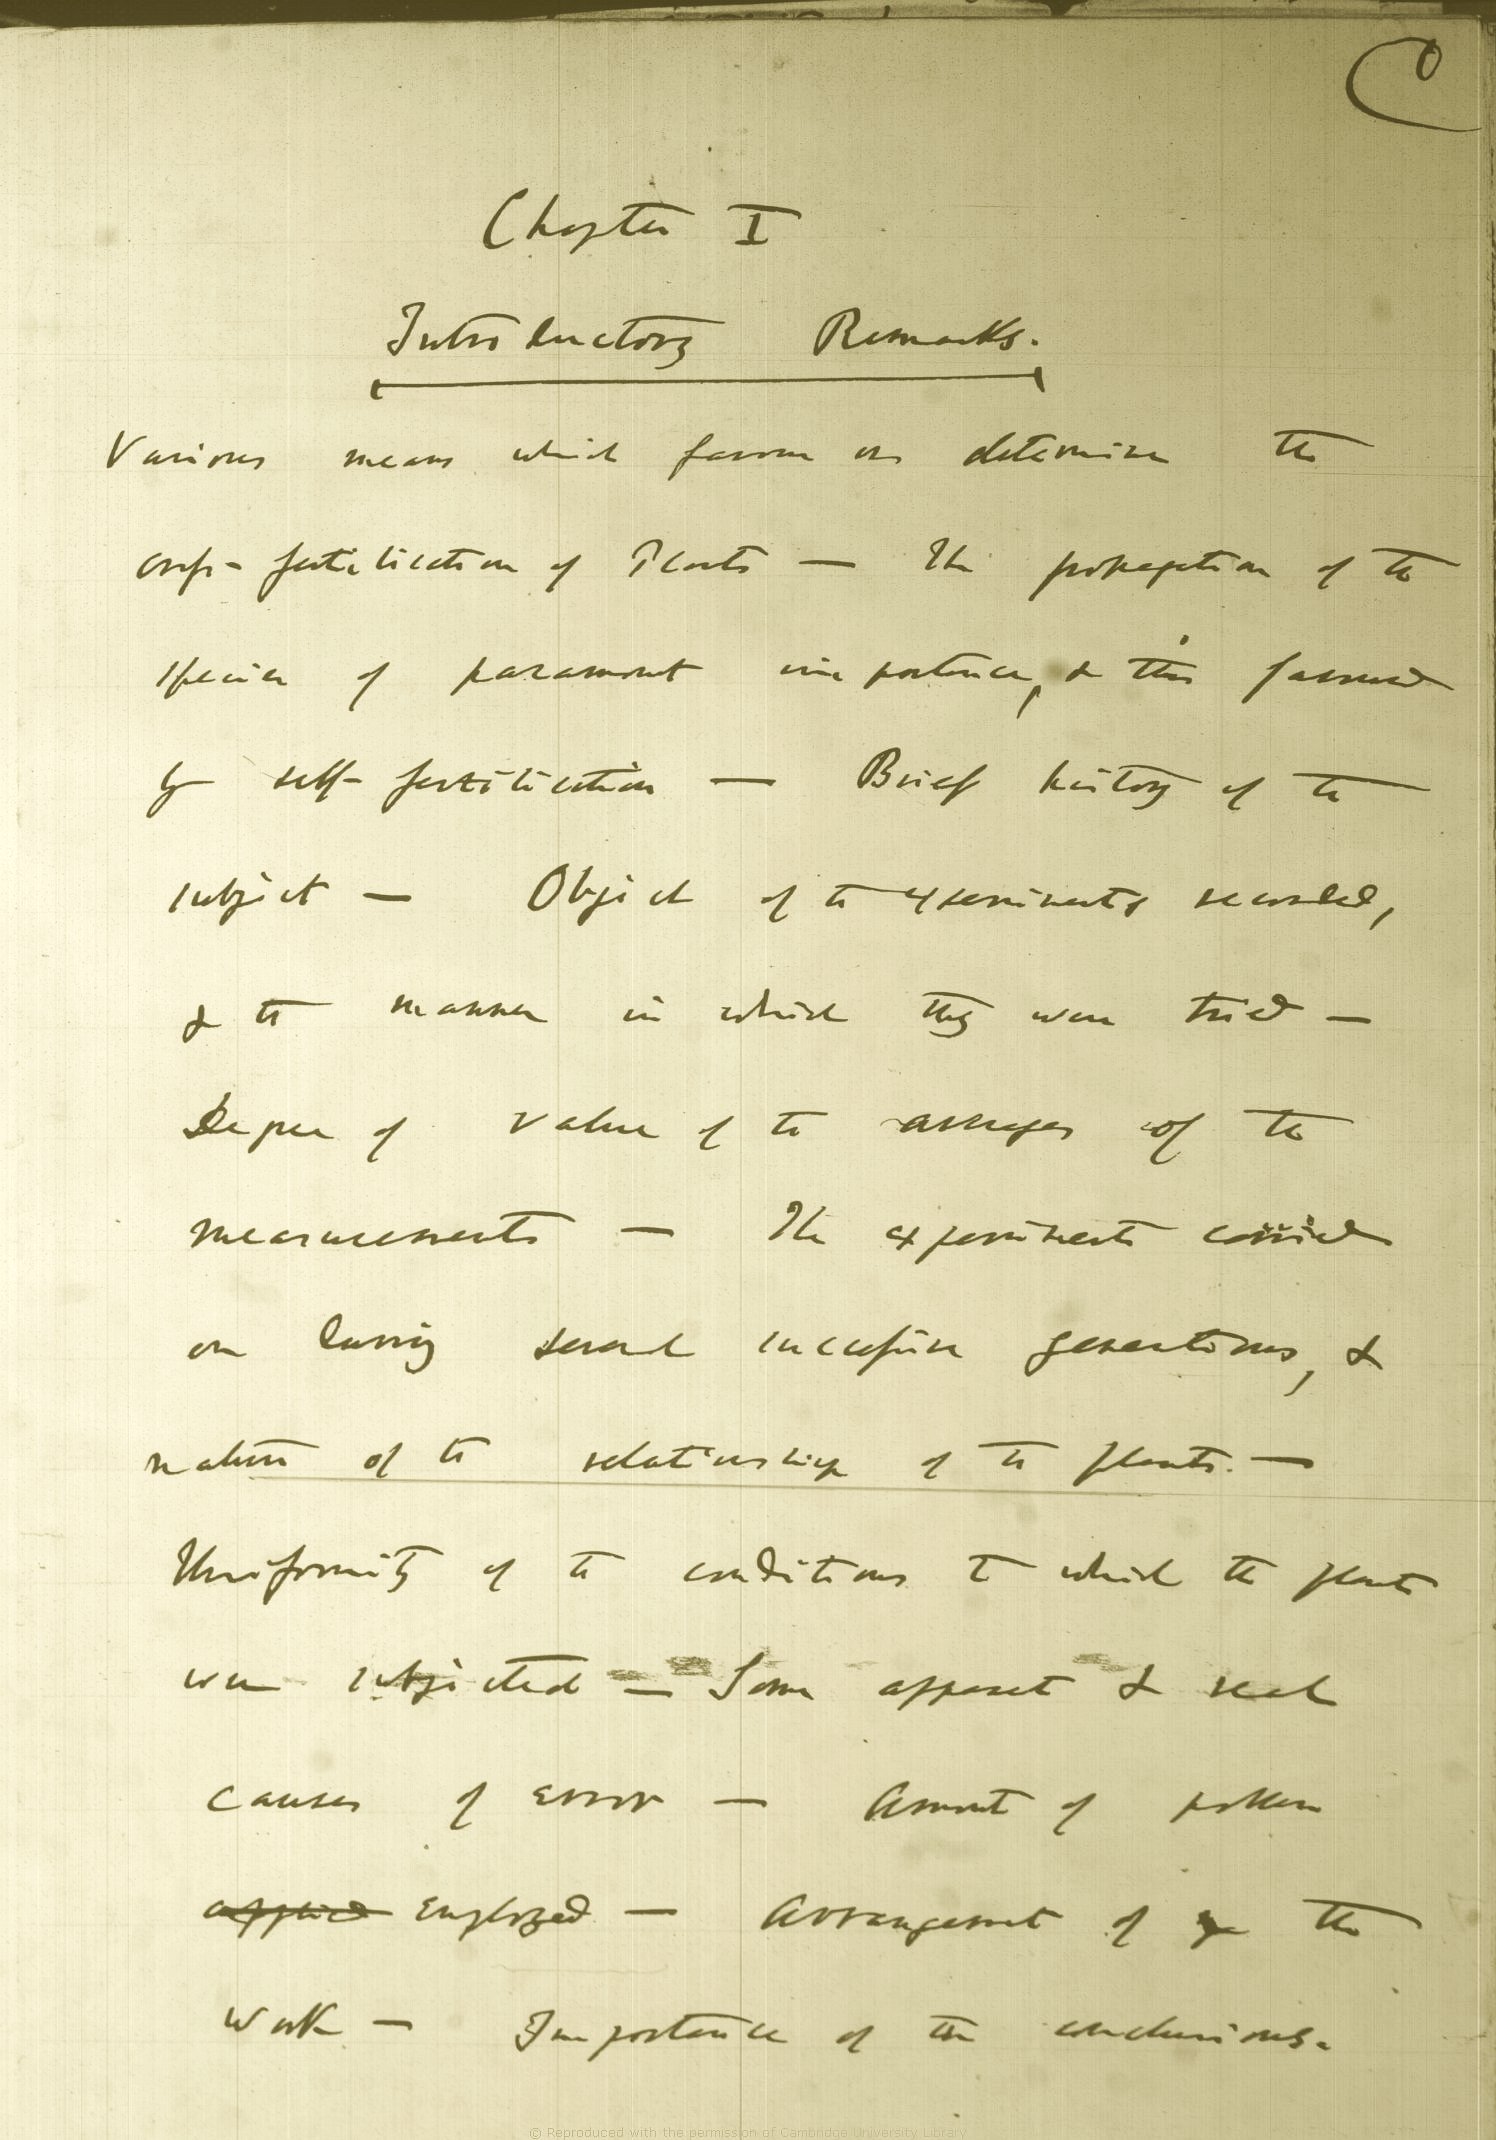 C
Chapter I
Introductory Remarks.
Various means which favour or determine the
cross-fertilisation of Plants — The propagation of the
species of paramount importance, & this favoured
by self-fertilisation — Brief history of the
subject — Object of the experiments recorded,
& the manner in which they were tried —
Degree of value of the averages of the
measurements — The experiments carried
on during several successive generations, &
nature of the relationship of the plants. —
Uniformity of the conditions to which the plants
were subjected — Some apparent & real
causes of error — Amount of pollen
applied employed — Arrangement of the
work — Importance of the conclusions.
© Reproduced with the permission of Cambridge University Library